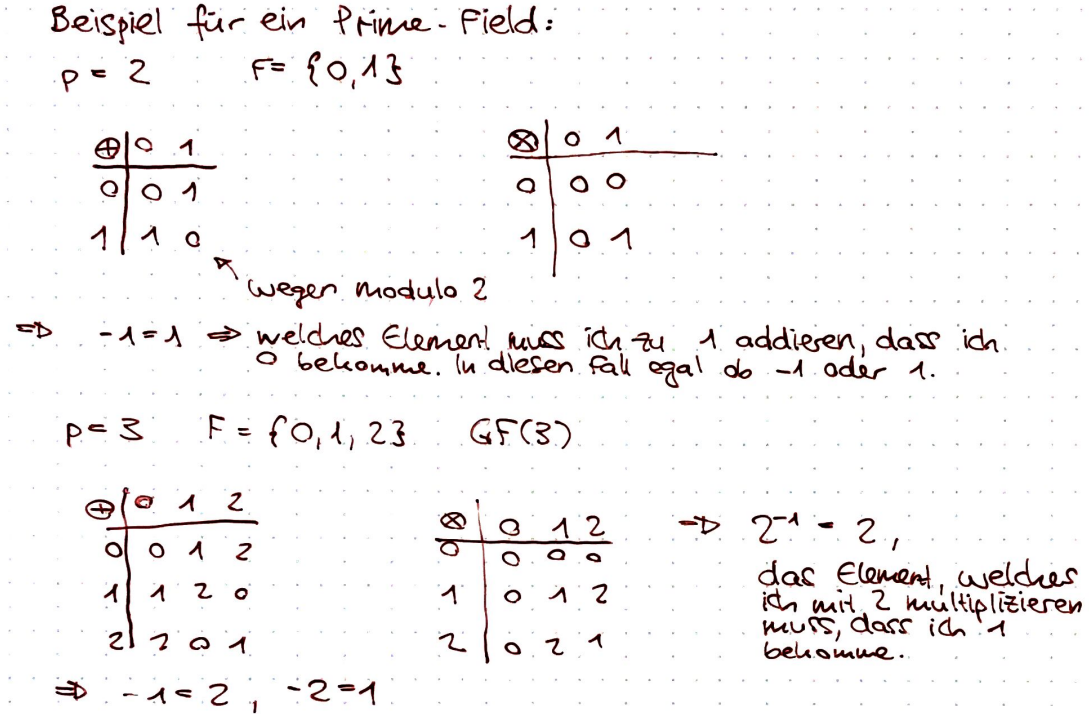 Beispiel für ein Prime-Field:
p = 2 F = {0,1}
⊕ | 0 1
0 | 0 1
1 | 1 0
⊗ | 0 1
0 | 0 0
1 | 0 1
wegen modulo 2
⇒ -1 = 1 ⇒ welches Element muss ich zu 1 addieren, dass ich
0 bekomme. In diesen Fall egal ob -1 oder 1.
p = 3 F = {0,1,2} GF(3)
⊕ | 0 1 2
0 | 0 1 2
1 | 1 2 0
2 | 2 0 1
⊗ | 0 1 2
0 | 0 0 0
1 | 0 1 2
2 | 0 2 1
⇒ 2⁻¹ = 2,
das Element, welches
ich mit 2 multiplizieren
muss, dass ich 1
bekomme.
⇒ -1 = 2, -2 = 1